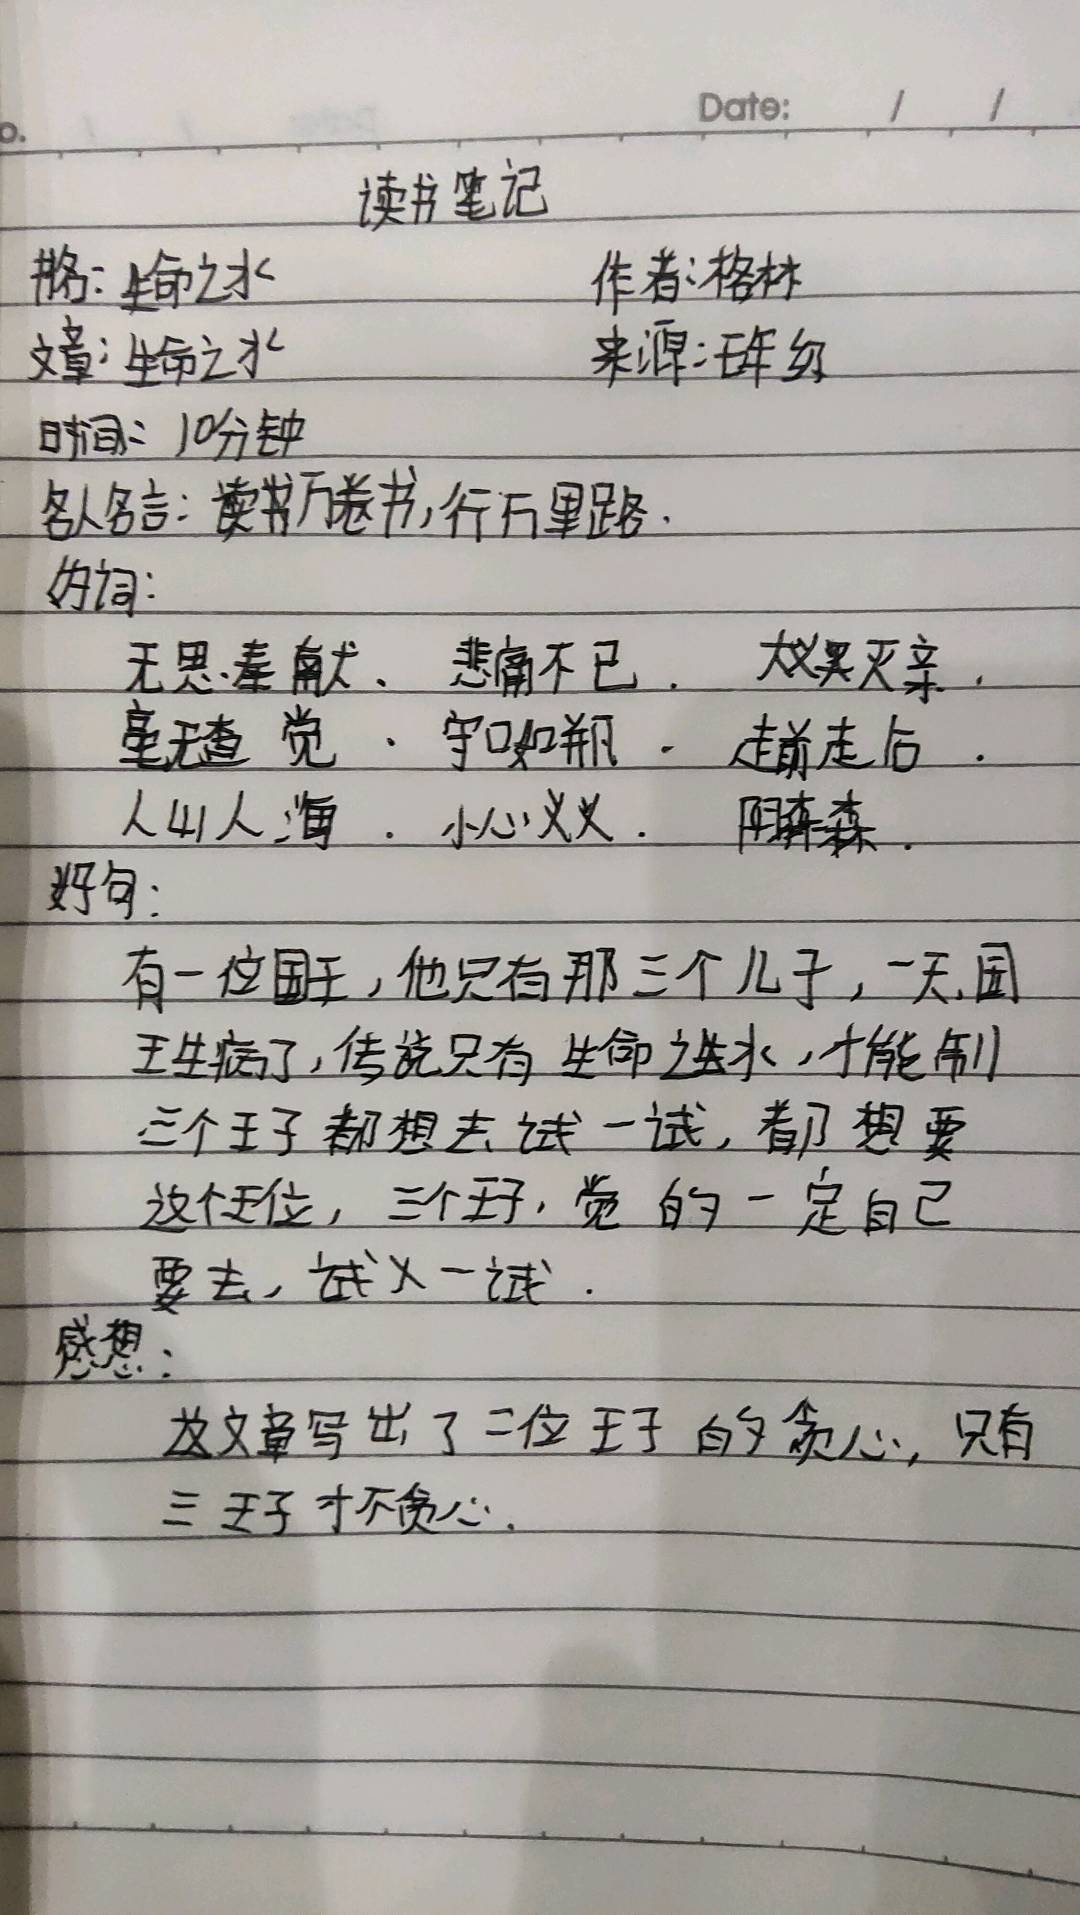 o.
Date: / /
读书笔记
书名：生命之水 作者：格林
文章：生命之水 来源：五年级
时间：10分钟
名人名言：读书万卷书，行万里路.
好词：
无思奉献、 悲痛不已. 大义灭亲.
毫无查觉. 守口如瓶. 走前走后.
人山人海. 小心义义. 阴森森.
好句：
有一位国王，他只有那三个儿子，一天,国
王生病了，传说只有生命之水，才能制
三个王子都想去试一试，都想要
这个王位，三个王子，觉的一定自己
要去，试一试.
感想：
这文章写出了二位王子的贪心，只有
三王子才不贪心.